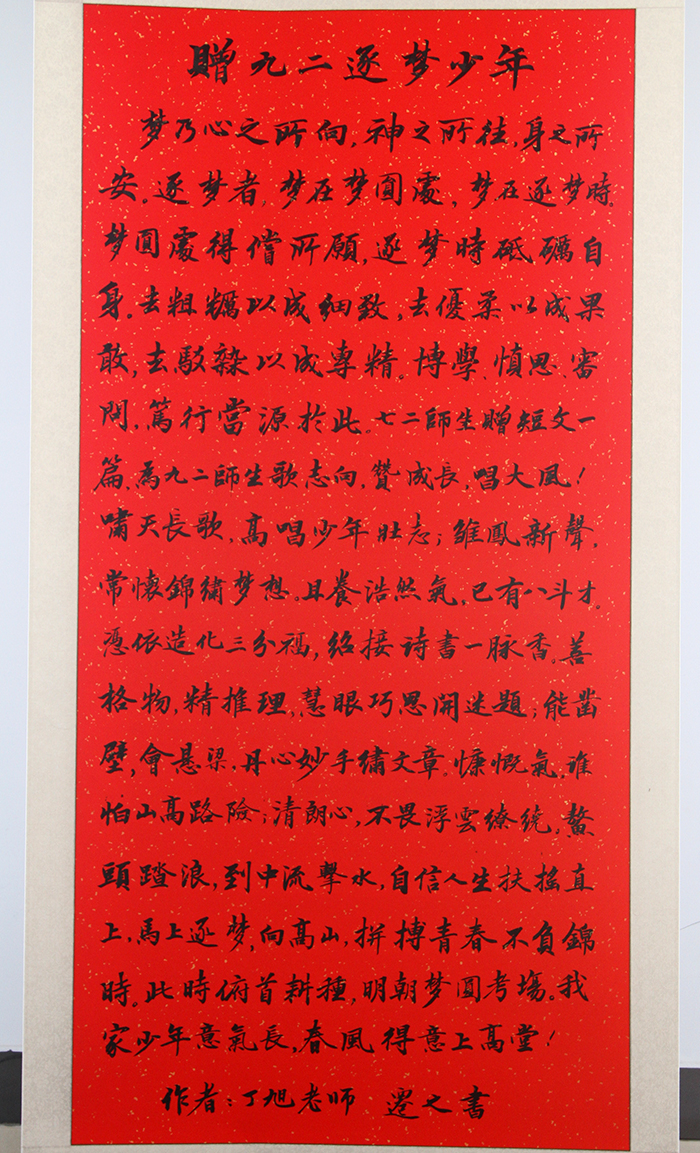 贈九二逐梦少年
梦乃心之所向,神之所往,身之所
安。逐梦者,梦在梦圆處,梦在逐梦時。
梦圆處得償所願,逐梦時砥礪自
身。去粗糲以成细致,去優柔以成果
敢,去駁雜以成專精。博學、慎思、審
問、篤行當源於此。七二師生贈短文一
篇,為九二師生歌志向,贊成長,唱大風!
嘯天長歌,高唱少年壯志;雛鳳新聲,
常懷錦繡梦想。且養浩然氣,已有八斗才。
憑依造化三分福,紹接诗書一脉香。善
格物,精推理,慧眼巧思開迷題;能凿
壁,會悬梁,丹心妙手繡文章。慷慨氣,谁
怕山高路險;清朗心,不畏浮雲繚繞。鰲
頭踏浪,到中流擊水,自信人生扶搖直
上,馬上逐梦,向高山,拼搏青春不負錦
時。此時俯首耕種,明朝梦圆考場。我
家少年意氣長,春風得意上高堂!
作者:丁旭老师 遷之書